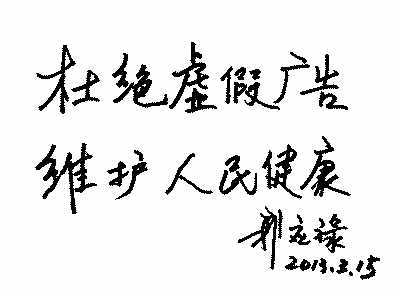 杜绝虚假广告
维护人民健康
郭应禄
2013.3.15